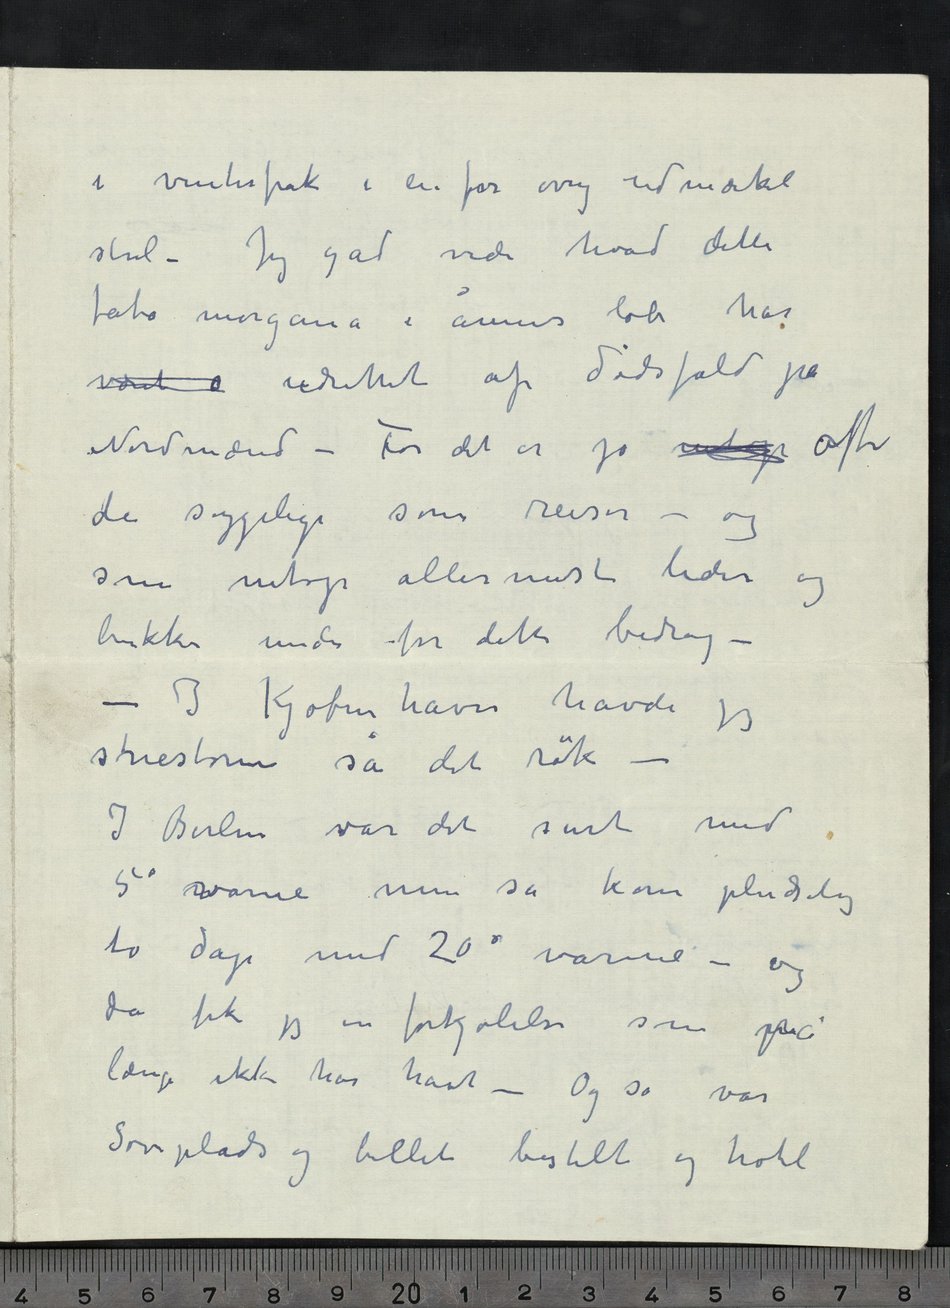 i vinterfrak i en for øvrig udmærket
stil – Jeg gad vide hvad dette
fata morgana i årenes løb har
udrettet af dødsfald på
Nordmænd – For det er jo ofte
de sygelige som reiser – og
som netop allermest lider og
bukker under for dette bedrag –
– I Kjøbenhavn havde jeg
snestorm så det røk –
I Berlin var det surt med
5° varme men så kom pludselig
to dage med 20° varme – og
da fik jeg en forkjølelse som på
længe ikke har havt – Og så var
Soveplads og billet bestilt og hotel
4 5 6 7 8 9 20 1 2 3 4 5 6 7 8